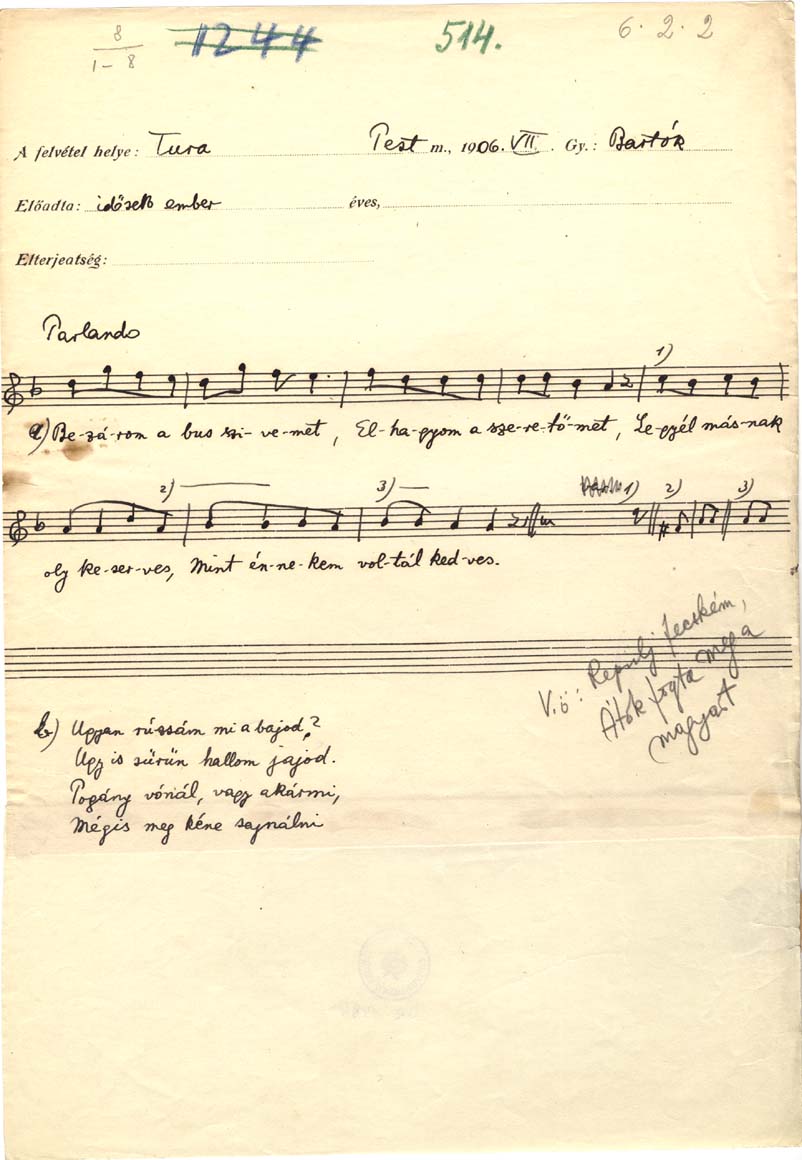 8
1-8 1244 514. 6.2.2
A felvétel helye: Tura Pest m., 1906. VII. Gy.: Bartók
Előadta: idősebb ember éves,
Elterjedtség:
Parlando
1)
a) Be-zá-rom a bus szi-ve-met, El-ha-gyom a sze-re-tő-met, Le-gyél más-nak
2) 3) 1) 2) 3)
oly ke-ser-ves, Mint én-ne-kem vol-tál ked-ves.
V.ö: Repülj fecském,
Átok fogta meg a
magyart
b) Ugyan rúzsám mi a bajod?
Ugy is sürün hallom jajod.
Pogány vónál, vagy akármi,
Mégis meg kéne sajnálni